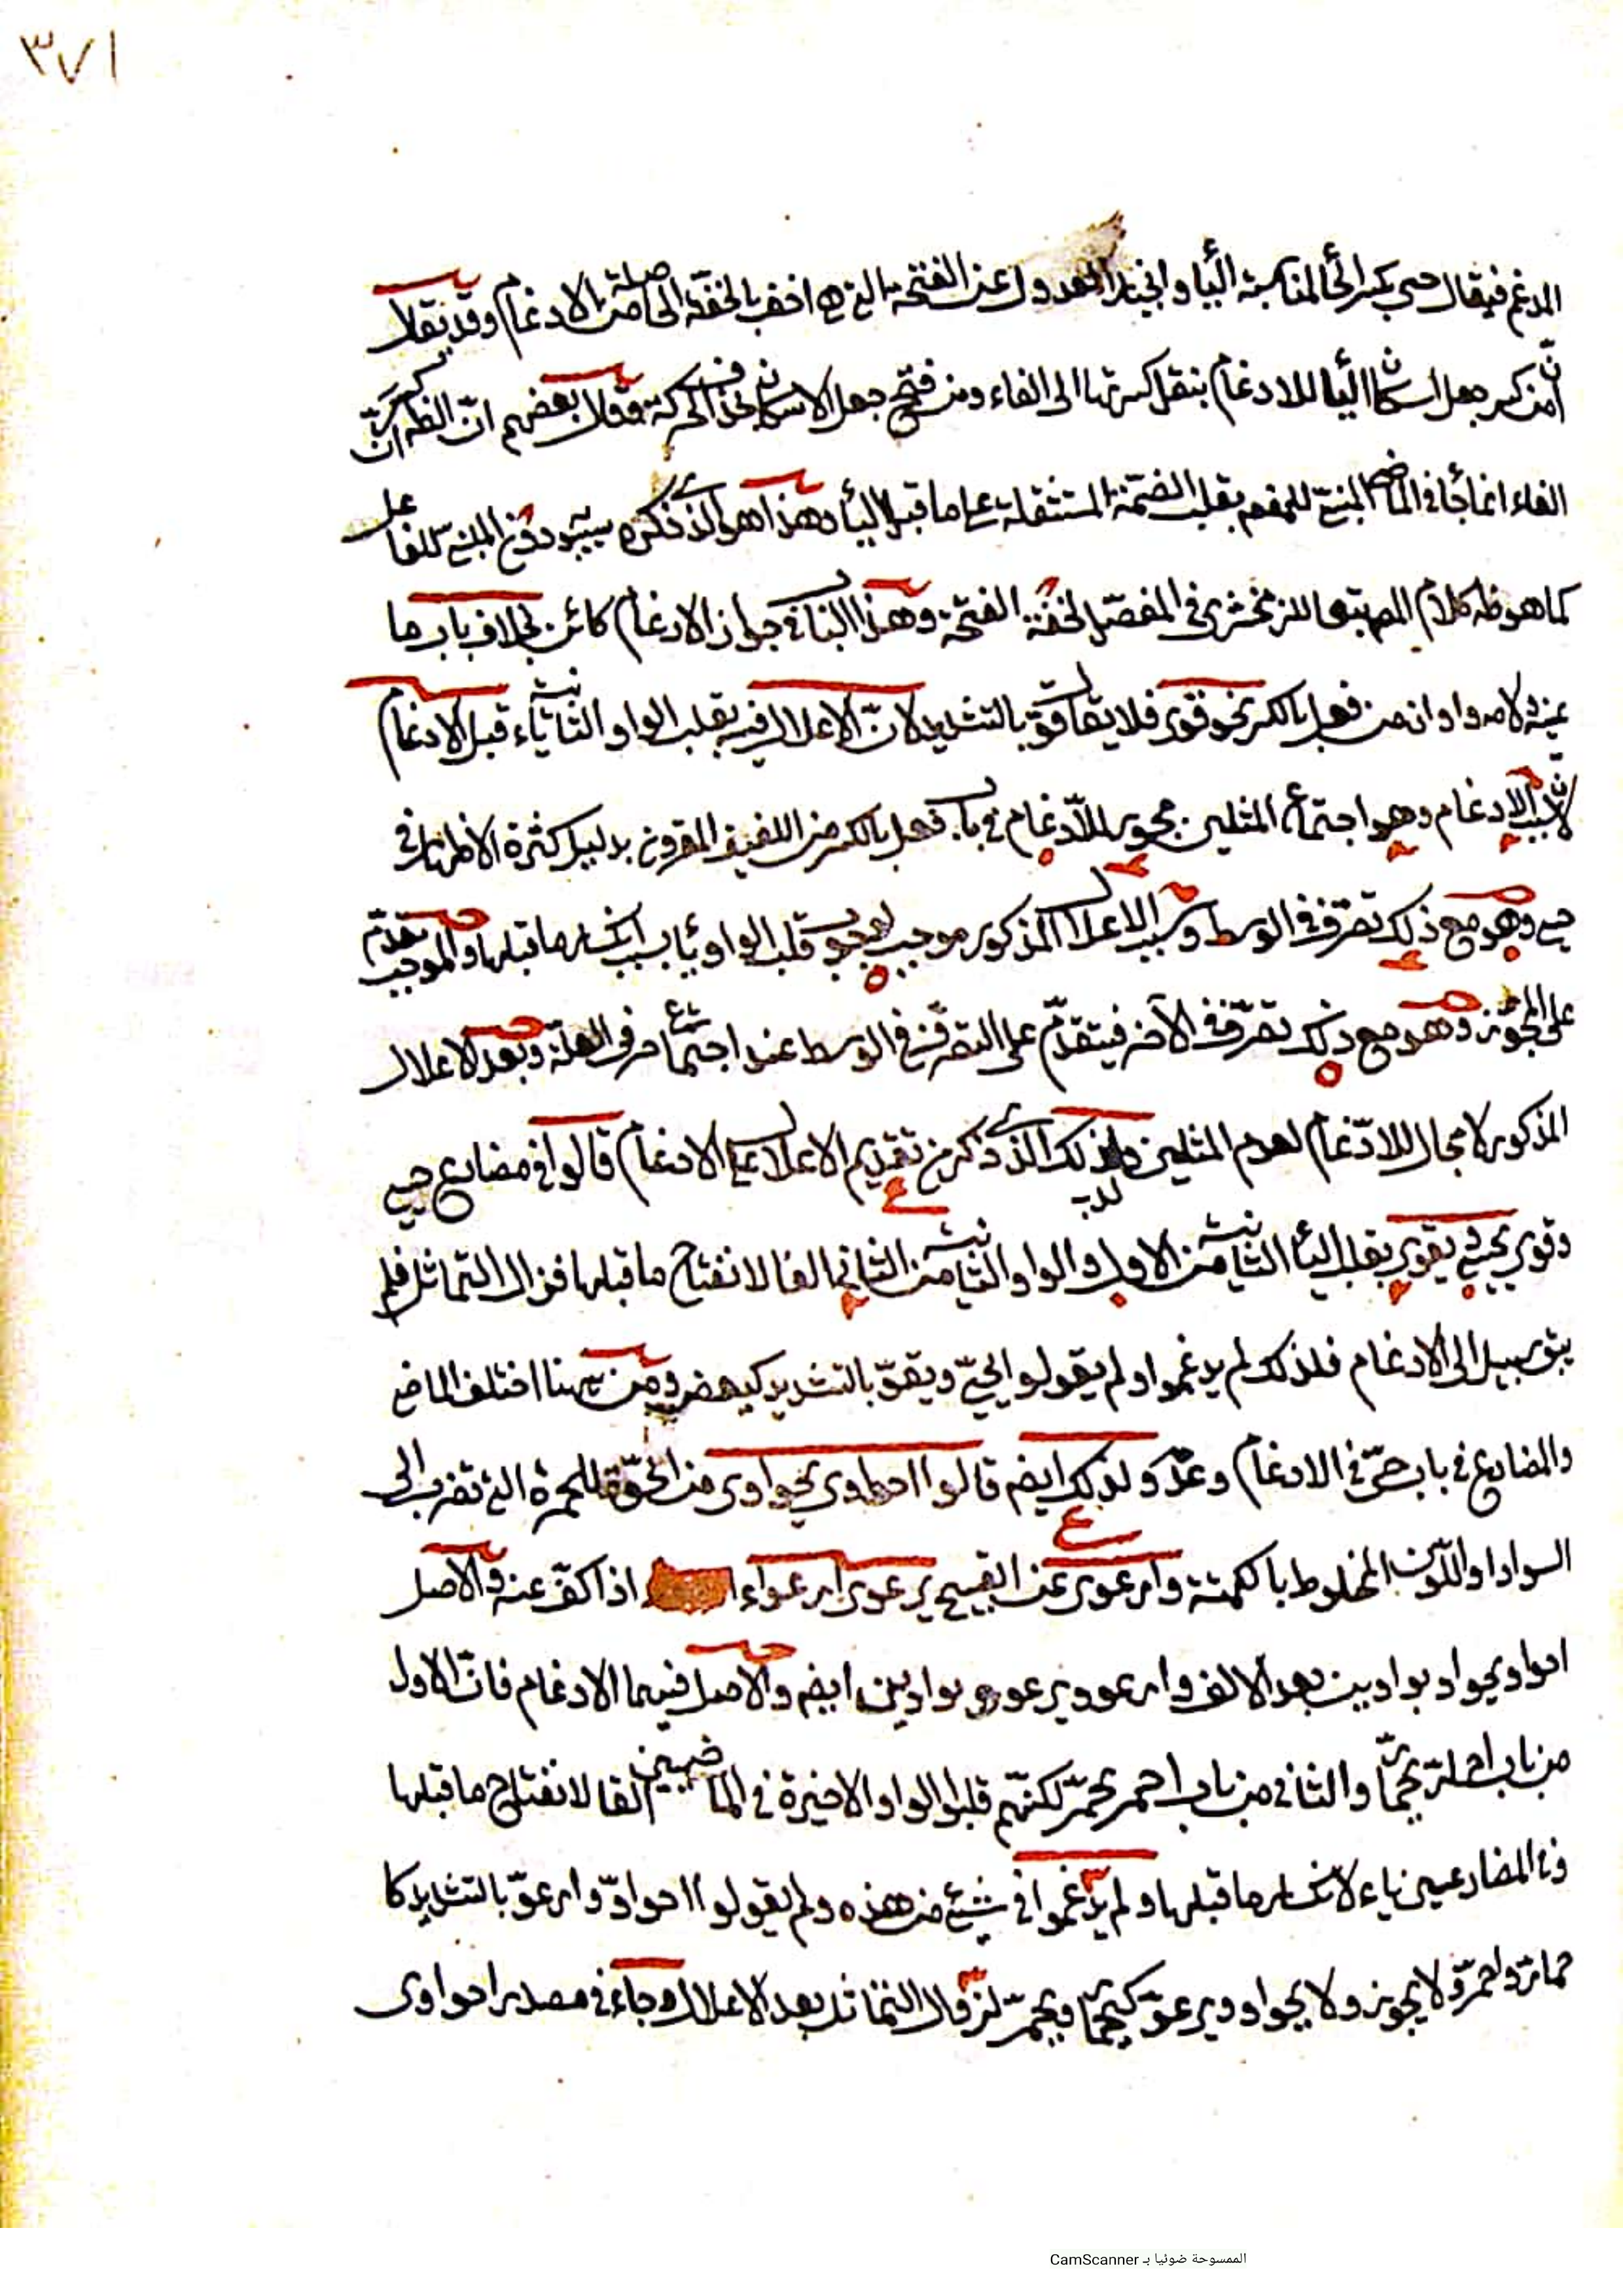 ٣٧١
المدغم فيقال حيى بكسر الحاء لمناسبة الياء والعدول عن الفتحة التي هي اخف بالخفة الحاصلة من الادغام وقد يقال
ان من كسر جعل اسكان الياء للادغام بنقل كسرتها الى الفاء ومن فتح جعل الاسكان بحذف الحركة وقال بعضهم ان الظ ان كسر
الفاء انما جاء في الماضي المبني للمفعول بقلب الضمة المستثقلة على ما قبل الياء وهذا هو الذي ذكره سيبويه دون المبني للفاعل
كما هو ظ كلام المص تبعا للزمخشري في المفصل لخفة الفتحة وهذا البناء في جواز الادغام كائن بخلاف باب ما
عينه ولامه واوان من فعل بالكسر نحو قوي فلا يقال قوّ بالتشديد لانّ الاعلال فيه بقلب الواو الثانية ياء قبل الادغام
لان سبب الادغام وهو اجتماع المثلين مجوز للادغام في باب فعل بالكسر من اللفيف المقرون بدليل كثرة الاظهار في
حيي وهو مع ذلك تصرف في الوسط وسبب الاعلال المذكور موجب لوجوب قلب الواو ياء بسبب انكسار ما قبلها والموجب يتقدّم
على المجوّز وهو مع ذلك تصرّف في الآخر فيتقدّم على التصرّف في الوسط عند اجتماع حرفي العلة وبعد الاعلال
المذكور لا مجال للادغام لعدم المثلين ولذلك الذي ذكر من تقديم الاعلال على الادغام قالوا في مضارع حيي
وقوي يحيى ويقوى بقلب الياء الثانية من الاول والواو الثانية من الثاني الفا لانفتاح ما قبلها فزال التماثل فلم
يبق سبيل الى الادغام فلذلك لم يدغموا ولم يقولوا يحيّ ويقوّ بالتشديد كيعض ومن ههنا اختلف الماضي
والمضارع في باب حيّ في الادغام وعدمه ولذلك ايضا قالوا احواوى يحواوى من الحوّة للحمرة التي تضرب الى
السواد او اللون المخلوط بالكمتة وارعوى عن القبيح يرعوي ارعواء اذا كفّ عنه والاصل
احواو ويحواو بواوين بعد الالف وارعوو ويرعوو بواوين ايضا والاصل فيهما الادغام فانّ الاول
من باب احمارّ يحمارّ والثاني من باب احمرّ يحمرّ لكنّهم قلبوا الواو الاخيرة في الماضيين الفا لانفتاح ما قبلها
وفي المضارعين ياء لانكسار ما قبلها ولم يدغموا في شيئ من هذه ولم يقولوا احواوّ وارعوّ بالتشديد كا
حمارّ واحمرّ ولا يجوز ولا يحواوّ ويرعوّ كيحمارّ ويحمرّ لزوال التماثل بعد الاعلال وجاء في مصدر احواوى
الممسوحة ضوئيا بـ CamScanner